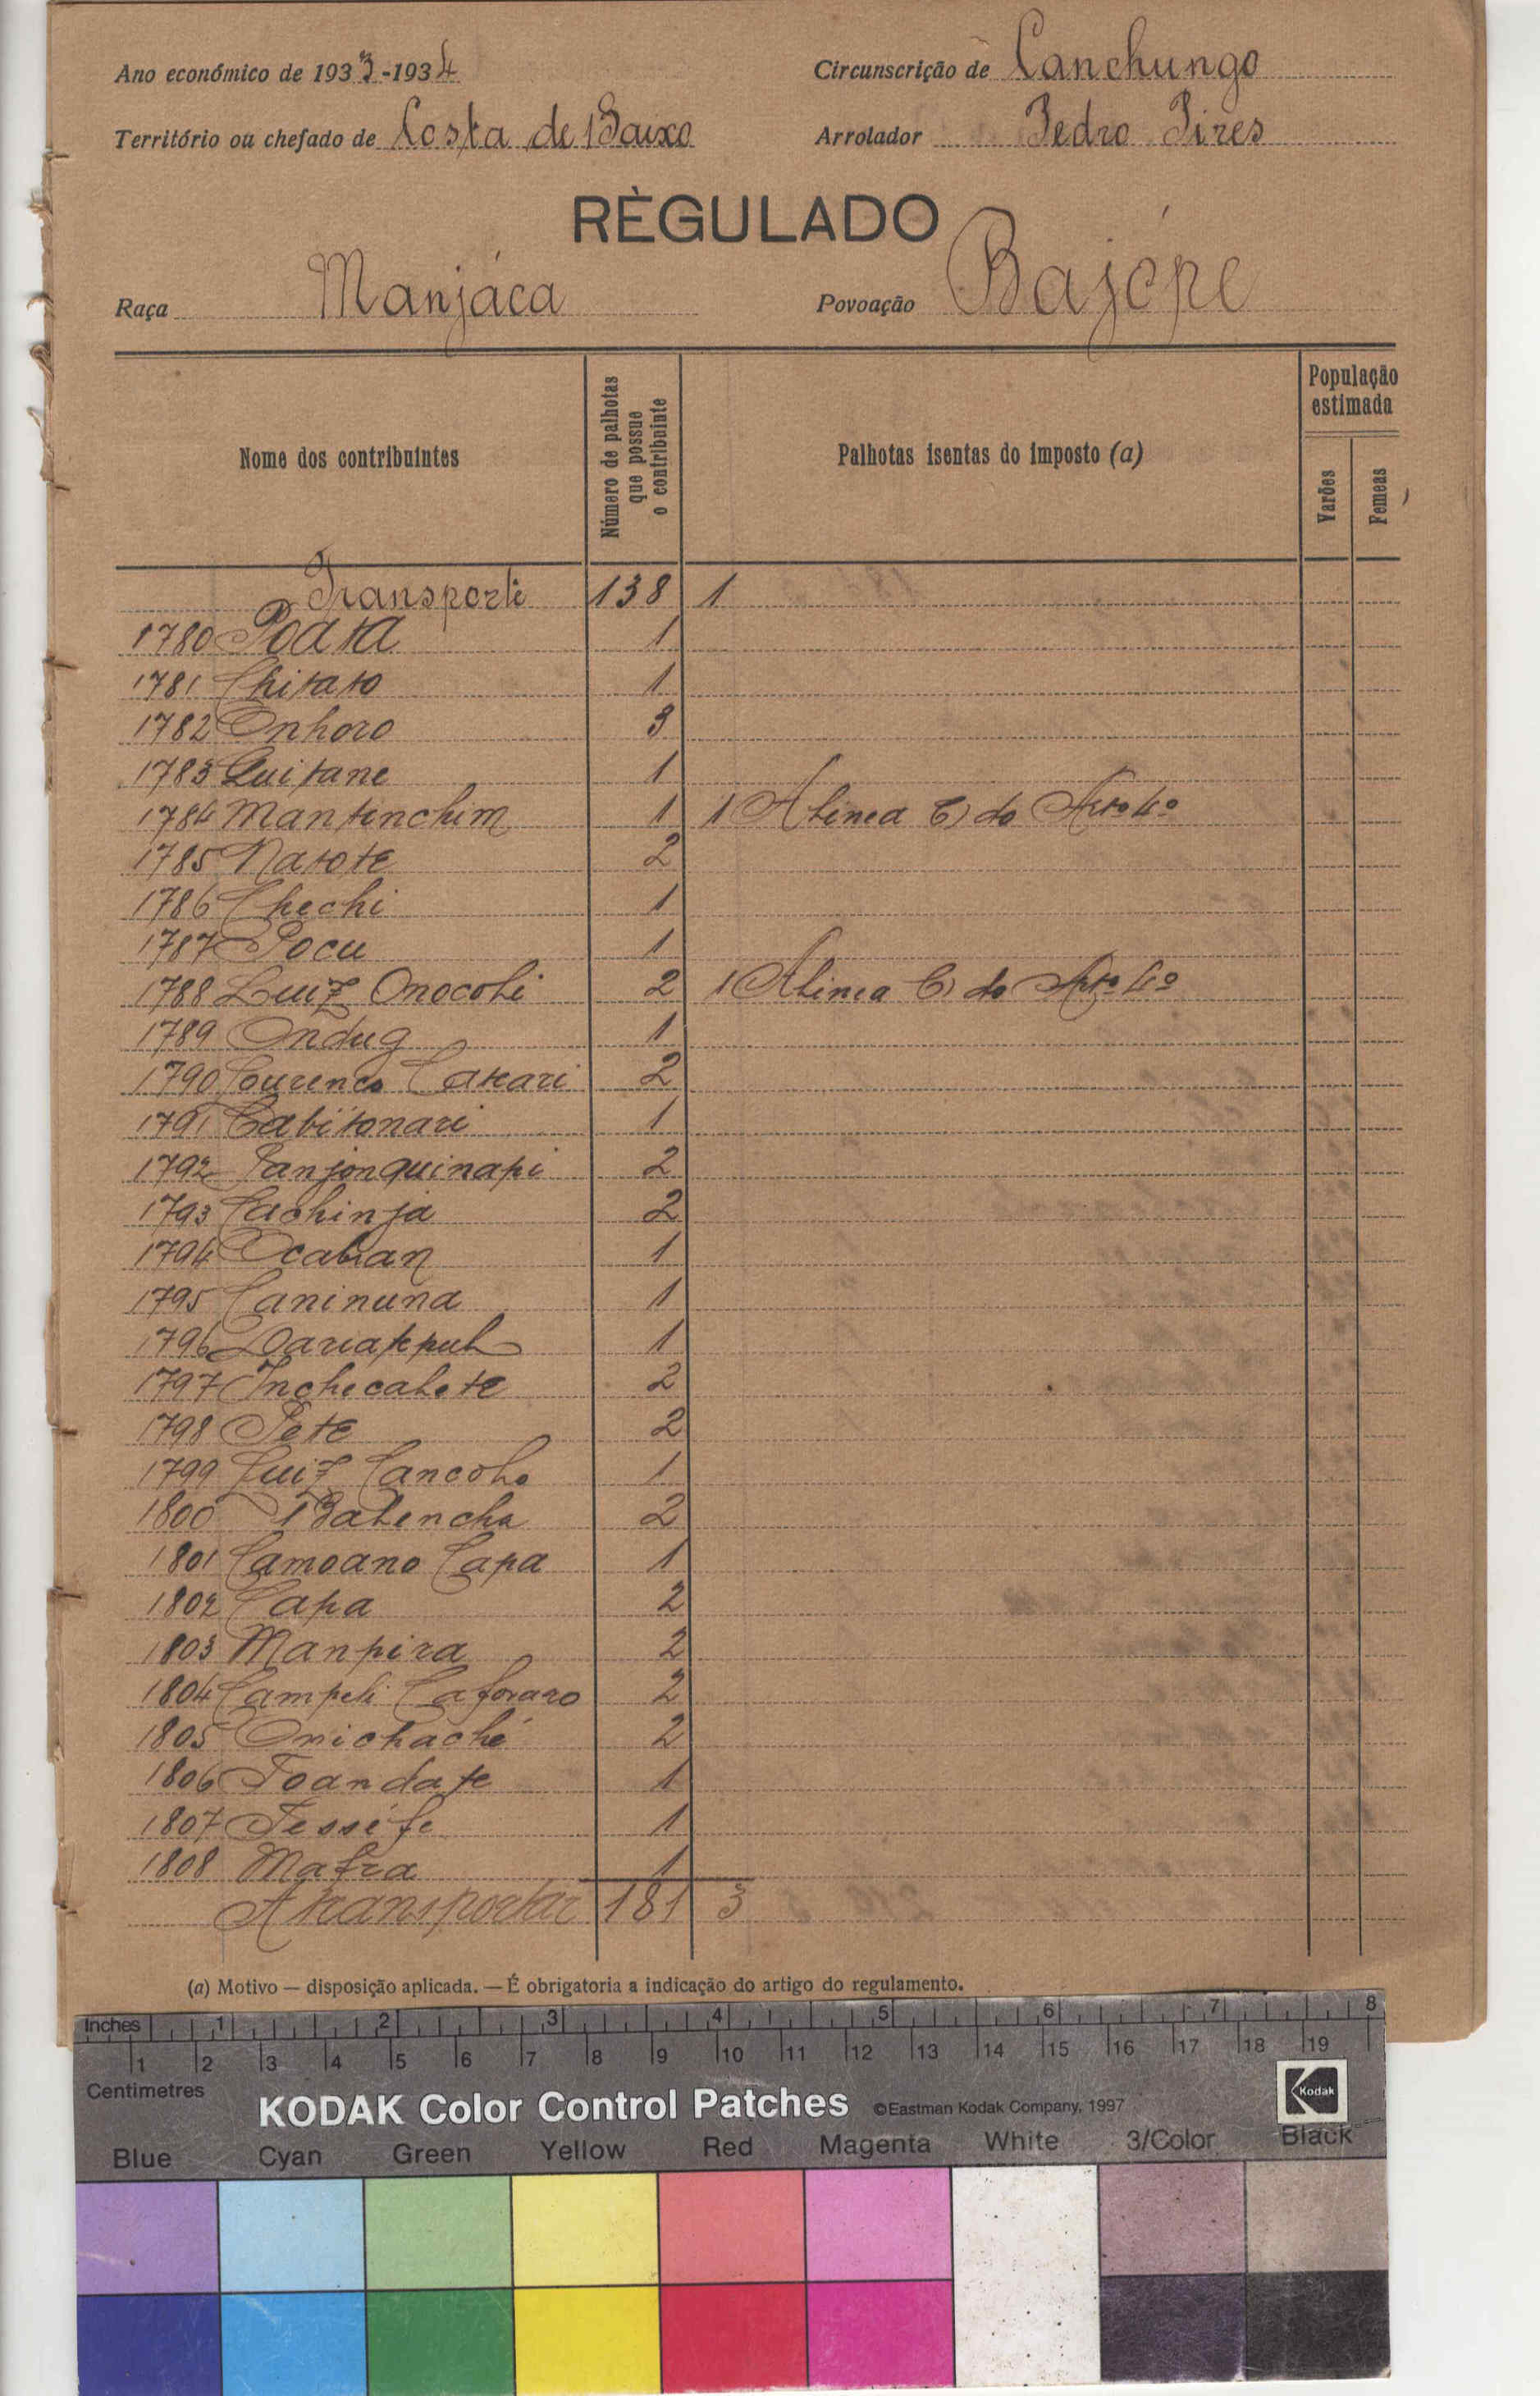 Ano económico de 1933-1934
Circunscrição de Canchungo
Território ou chefado de Costa de Baixo
Arrolador Pedro Pires
RÈGULADO
Raça Manjáca
Povoação Bajópe
Nome dos contribuintes
Número de palhotas que possue o contribuinte
Palhotas isentas do imposto (a)
População estimada
Varões
Femeas
Transporte 138 1
1780 Poata 1
1781 Chitato 1
1782 Onhoro 3
1783 Quitane 1
1784 Mantinchim 1 1 Alinea C) do Artº 4º
1785 Natote 2
1786 Chechi 1
1787 Pocu 1
1788 Luiz Onocoli 2 1 Alinea C) do Artº 4º
1789 Ondug 1
1790 Lourenco Catcari 2
1791 Cabitonari 1
1792 Panjonquinapi 2
1793 Cachinja 2
1794 Ocaban 1
1795 Caninuna 1
1796 1
1797 Inchecalete 2
1798 Pete 2
1799 Luiz Cancolo 1
1800 Balencha 2
1801 Camoano Capa 1
1802 Capa 2
1803 Manpira 2
1804 Campeli 2
1805 Onichaché 2
1806 Toandate 1
1807 Tessife 1
1808 Mafra 1
A transportar 181 3
(a) Motivo — disposição aplicada. — É obrigatoria a indicação do artigo do regulamento.
Inches 1 2 3 4 5 6 7 8
1 2 3 4 5 6 7 8 9 10 11 12 13 14 15 16 17 18 19
Centimetres
KODAK Color Control Patches ©Eastman Kodak Company, 1997 Kodak
Blue Cyan Green Yellow Red Magenta White 3/Color Black